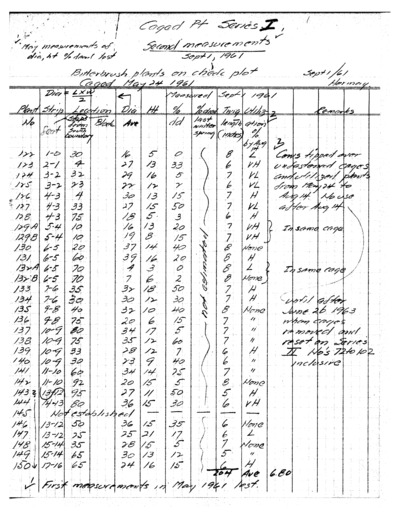 Caged Pt Series I
✓ May measurements of dia, ht % dead last
Second measurements ✓
Sept 1, 1961
Bitterbrush plants on check plot Sept 1/61
Caged May 24 1961 Hormay
Dia = L x W / 2 ← Measured Sept 1 1961
Plant No Strip Feet Location Steps from South boundary Block Dia Ave Ht % dd % dead last winter spring Twig length (inches) Utilization % by Aug Remarks
122 1-0 30 16 5 0 8 L Cows tipped over
123 2-1 9 27 13 33 6 VH unfastened cages
124 3-2 32 29 16 5 7 VL and utilized plants
125 3-2 23 22 12 2 6 VL from May 24 to
126 4-3 9 30 13 15 7 H Aug 14. No use
127 4-3 33 27 15 50 7 VL after Aug 14
128 4-3 75 18 5 3 6 H
129A 5-4 10 16 13 20 7 VH In same cage
129B 5-4 10 19 8 15 7 VH
130 6-5 20 37 14 40 8 None
131 6-5 60 39 16 20 8 H
132A 6-5 70 4 3 0 8 L In same cage
132B 6-5 70 7 6 2 8 None
133 7-6 35 32 18 50 7 H
134 7-6 30 30 12 30 7 H until after
135 9-8 40 32 10 40 8 None June 26 1963
136 9-8 75 20 6 15 7 " when cages
137 10-9 80 34 17 5 7 " removed and
138 10-9 75 35 12 60 7 " reset on Series
139 10-9 33 28 12 7 6 H II No's 72 to 102
140 10-9 30 23 9 40 6 " inclusive
141 11-10 60 34 14 25 7 "
142 11-10 92 20 15 5 8 None
143 13-12 95 27 11 50 5 H
144 14-13 80 36 15 30 6 VH
145 Not established
146 13-12 50 36 15 35 6 None
147 13-12 25 25 21 17 6 L
148 15-14 35 28 15 5 7 None
149 15-14 65 30 13 12 5 "
150 17-16 65 24 16 15 6 H
not estimated
204 Ave 6.80
✓ First measurements in May 1961 last.